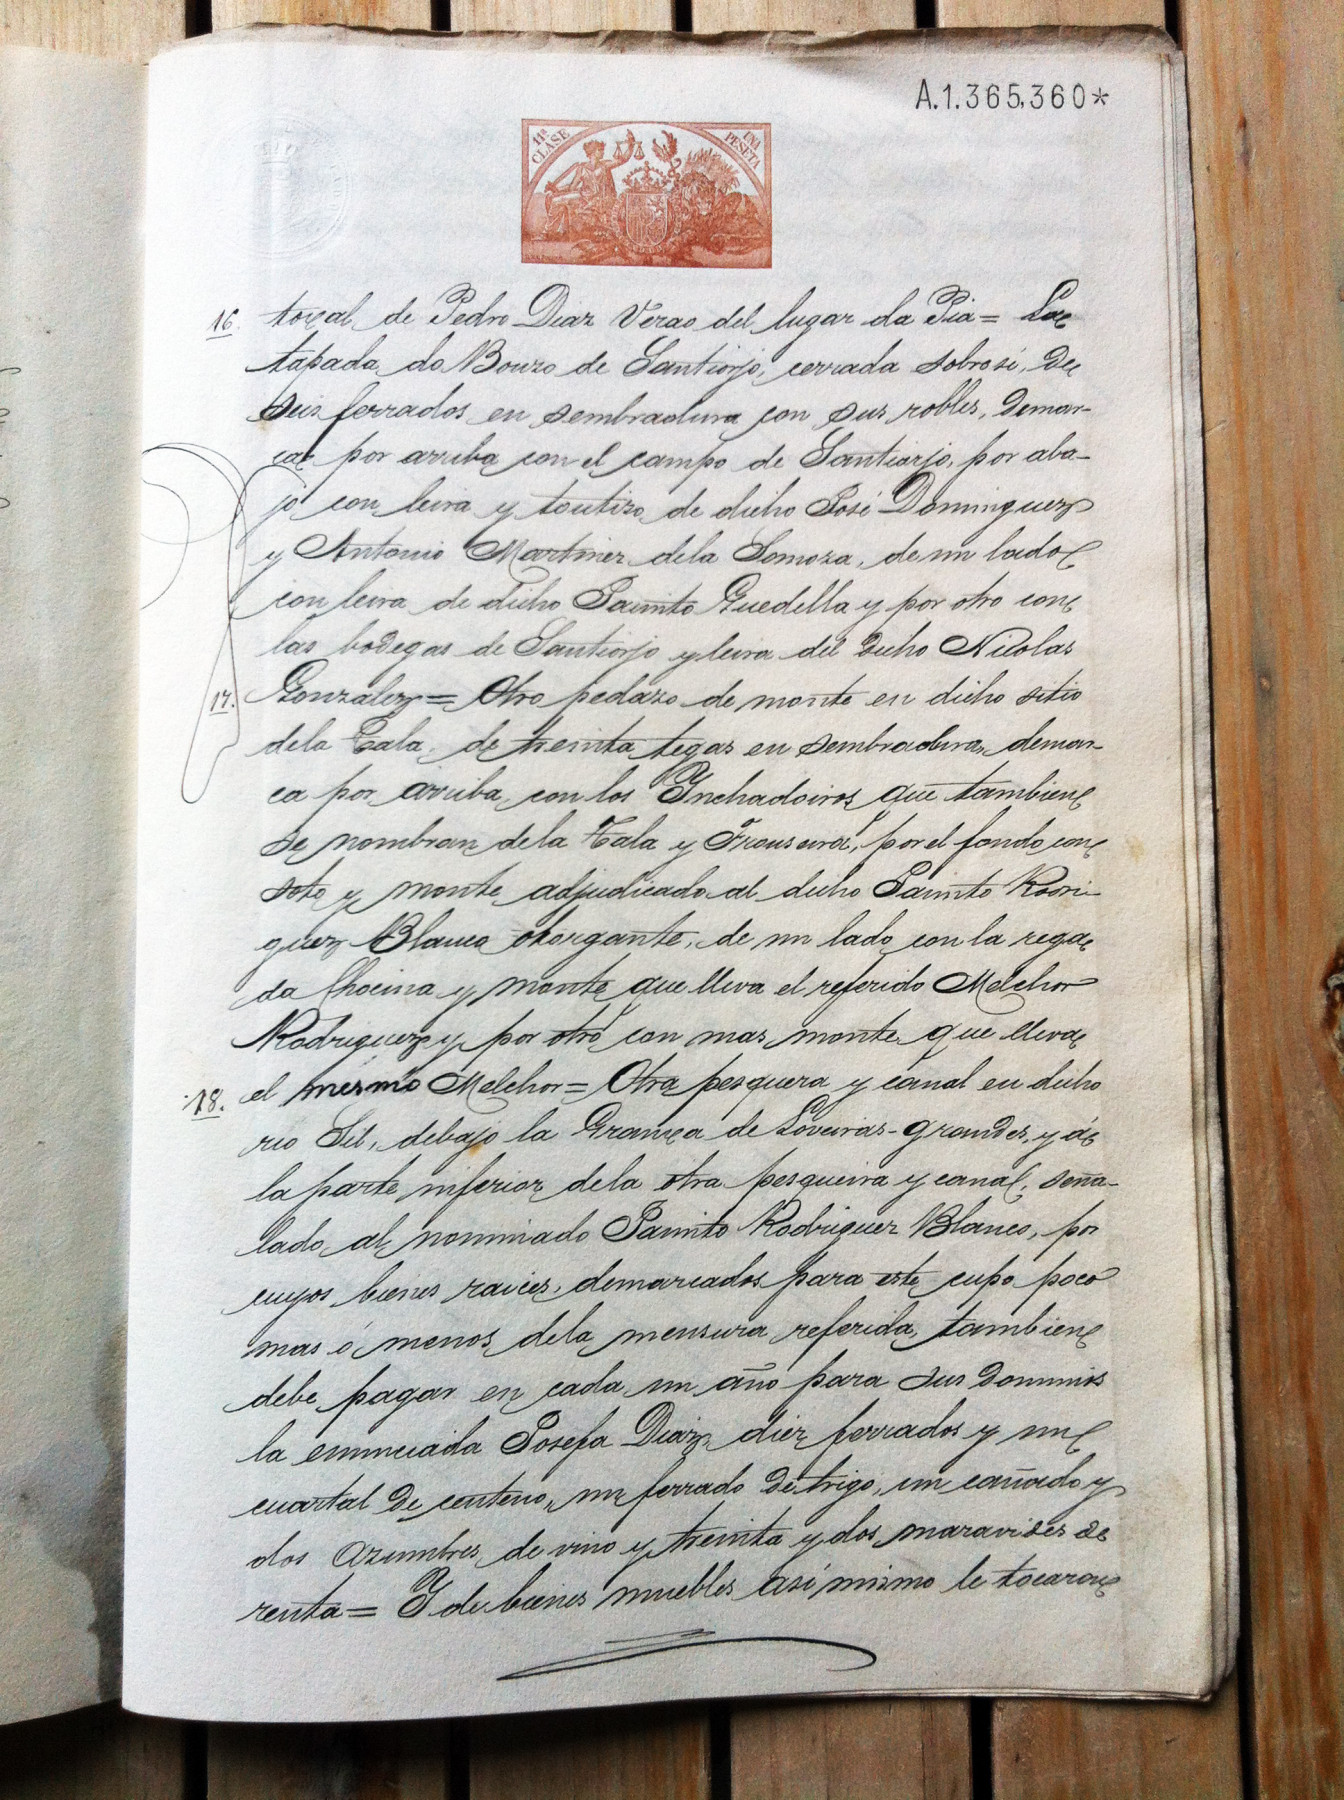 A.1.365,360*
11ª CLASE UNA PESETA
16. toral de Pedro Diaz Verao del lugar da Pia= La
tapada do Bouzo de Santiorjo, cerrada sobresí, de
seis ferrados en sembradura con sus robles, demar-
ca por arriba con el campo de Santiorjo, por aba-
jo con leira y toutizo de dicho José Dominguez
y Antonio Martinez dela Somoza, de un lado
con leira de dicho Jacinto Guedella y por otro con
las bodegas de Santiorjo y leira del dicho Nicolas
17. Gonzalez= Otro pedazo de monte en dicho sitio
dela Tala, de treinta tegas en sembradura, demar-
ca por arriba con los Inchadoiros que tambien
se nombran dela Tala y Frouseira, por el fondo con
soto y monte adjudicado al dicho Jacinto Rodri-
guez Blanco otorgante, de un lado con la rega
da Chocina y monte que lleva el referido Melchor
Rodriguez y por otro con mas monte que lleva
18. el mesmo Melchor= Otra pesquera y canal en dicho
rio Sil, debajo la Granxa de Loveiras-grandes, y á
la parte inferior dela otra pesqueira y canal, seña-
lado al nominado Jacinto Rodriguez Blanco, por
cuyos bienes raices, demarcados para este cupo poco
mas ó menos dela mensura referida, tambien
debe pagar en cada un año para sus Dominios
la enunciada Josefa Diaz, diez ferrados y un
cuartal de centeno, un ferrado de trigo, un cañado y
dos azumbres de vino y treinta y dos maravises de
renta= Y de bienes muebles así mismo le tocaron